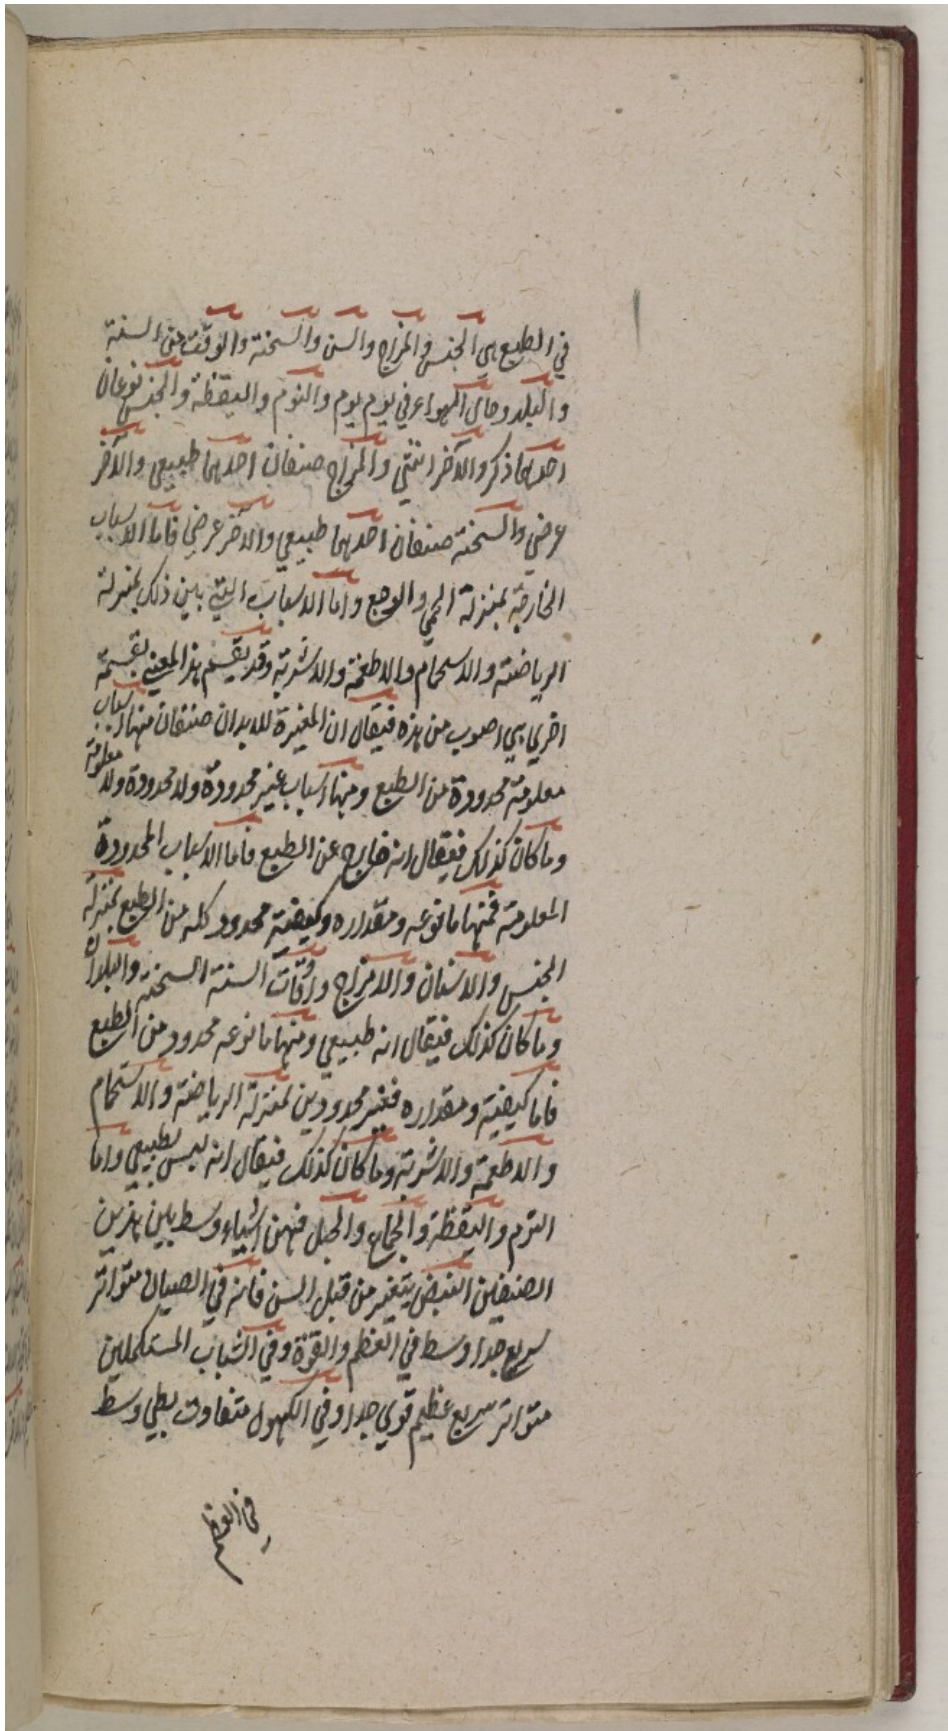 في الطبع هي الجنس والمزاج والسن والسحنة والوقت من السنة
والبلد وحال الهواء في يوم يوم والنوم واليقظة والجنس نوعان
احدهما ذكر والآخر انثي والمزاج صنفان احدهما طبيعي والآخر
عرضي والسحنة صنفان احدهما طبيعي والآخر عرضي فاما الاسباب
الخارجة بمنزلة الحمي والوجع واما الاسباب التي بين ذلك بمنزلة
الرياضة والاستحمام والاطعمة والاشربة وقد يقسم هذا المعني بقسمة
اخري هي اصوب من هذه فيقال ان المغيرة للابدان صنفان منها اسباب
معلومة محدودة من الطبع ومنها اسباب غير محدودة ولا محدودة ولا معلومة
وما كان كذلك فيقال انه خارج عن الطبع فاما الاسباب المحدودة
المعلومة فمنها ما نوعه ومقداره وكيفيته محدود كله من الطبع بمنزلة
الجنس والاسنان والامزاج واوقات السنة السحنة والبلدان
وما كان كذلك فيقال انه طبيعي ومنها ما نوعه محدود من الطبع
فاما كيفيته ومقداره فغير محدودين بمنزلة الرياضة والاستحمام
والاطعمة والاشربة وما كان كذلك فيقال انه ليس بطبيعي واما
النوم واليقظة والجماع والحبل فهن اشياء وسط بين هذين
الصنفين النبض يتغير من قبل السن فانه في الصبيان متواتر
سريع جدا وسط في العظم والقوة وفي الشباب المستكملين
متواتر سريع عظيم قوي جدا وفي الكهول متفاوت بطي وسط
في العظم